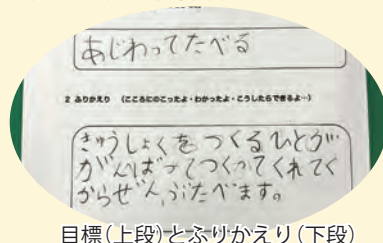 あじわってたべる
2 ふりかえり (こころにのこったよ・わかったよ・こうしたらできるよ…)
きゅうしょくをつくるひとが
がんばってつくってくれてく
からぜんぶたべます。
目標(上段)とふりかえり(下段)